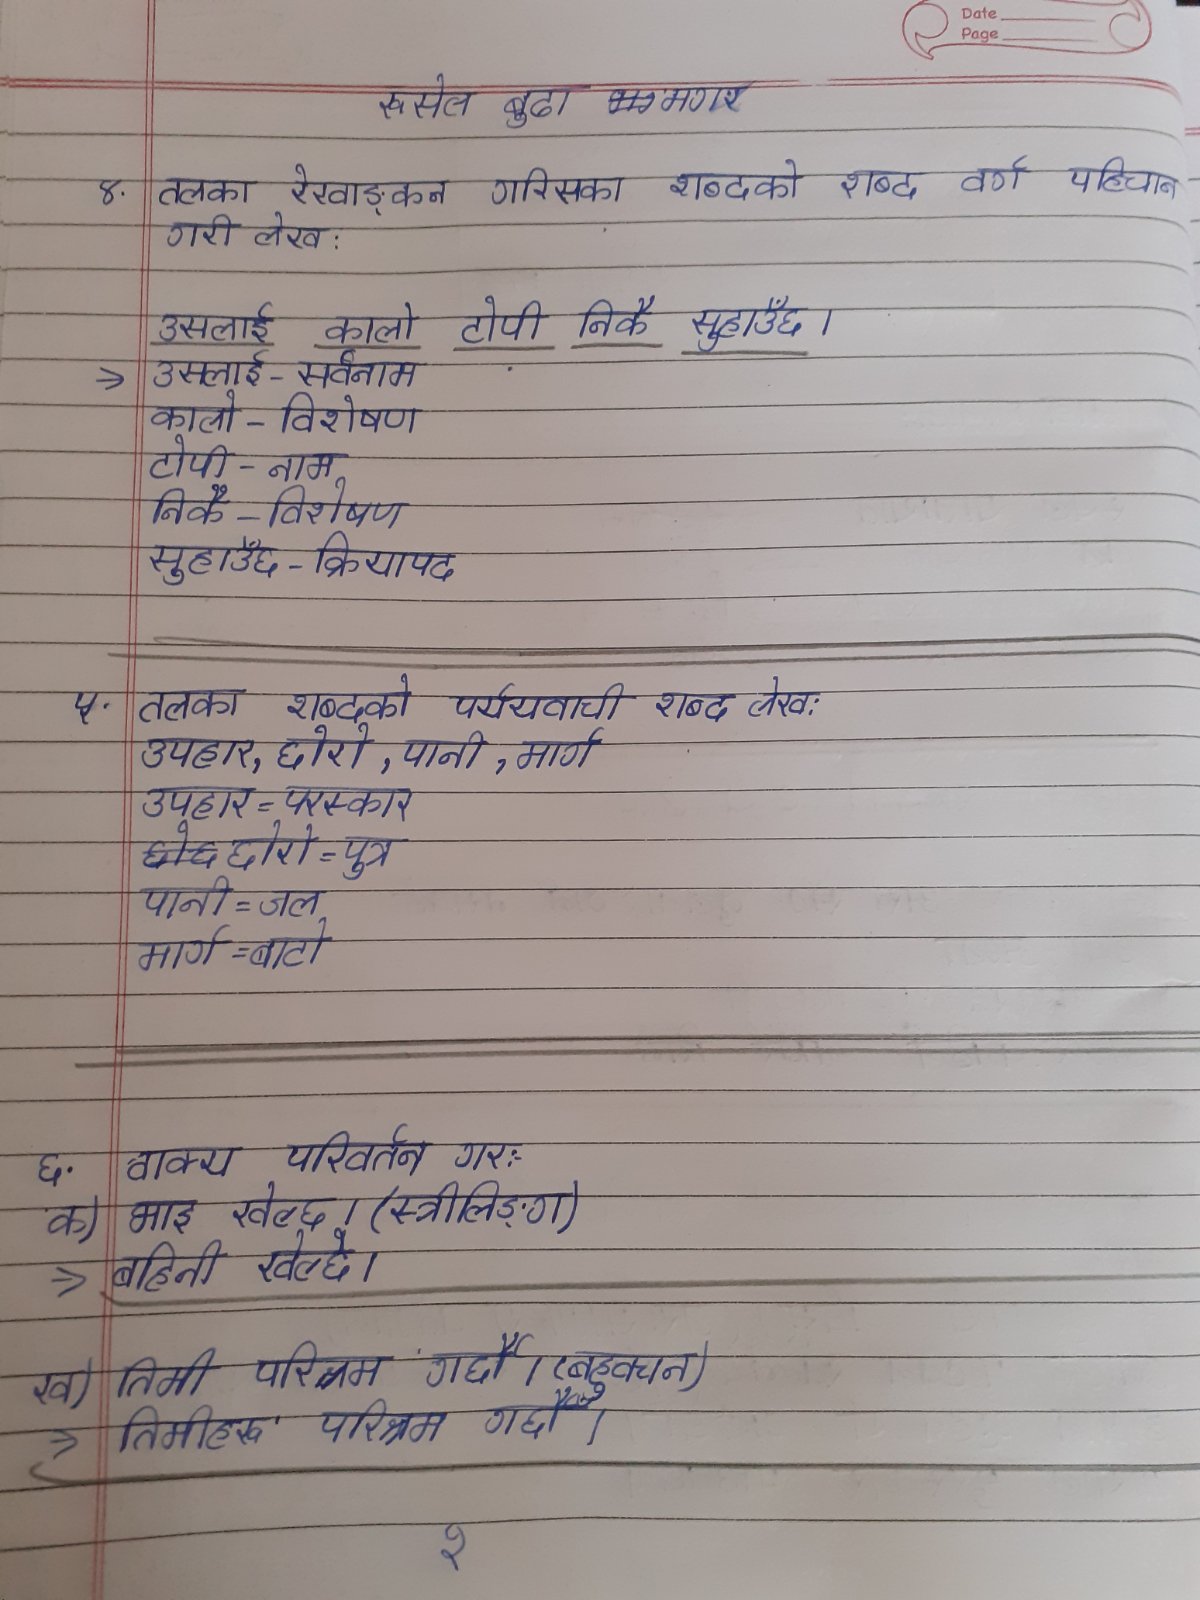 Date
Page
रुसेल बुढा मगर
४. तलका रेखाङ्कन गरिसका शब्दको शब्द वर्ग पहिचान
गरी लेख:
उसलाई कालो टोपी निकै सुहाउँछ ।
⇒ उसलाई - सर्वनाम
कालो - विशेषण
टोपी - नाम
निकै - विशेषण
सुहाउँछ - क्रियापद
५. तलका शब्दको पर्ययवाची शब्द लेख:
उपहार, छोरो, पानी, मार्ग
उपहार = परस्कार
छोरो = पुत्र
पानी = जल
मार्ग = बाटो
६. वाक्य परिवर्तन गर:-
क) भाइ खेल्छ । (स्त्रीलिङ्ग)
⇒ बहिनी खेल्छे ।
ख) तिमी परिश्रम गर्छौ । (बहुवचन)
⇒ तिमीहरू परिश्रम गर्छौ ।
२